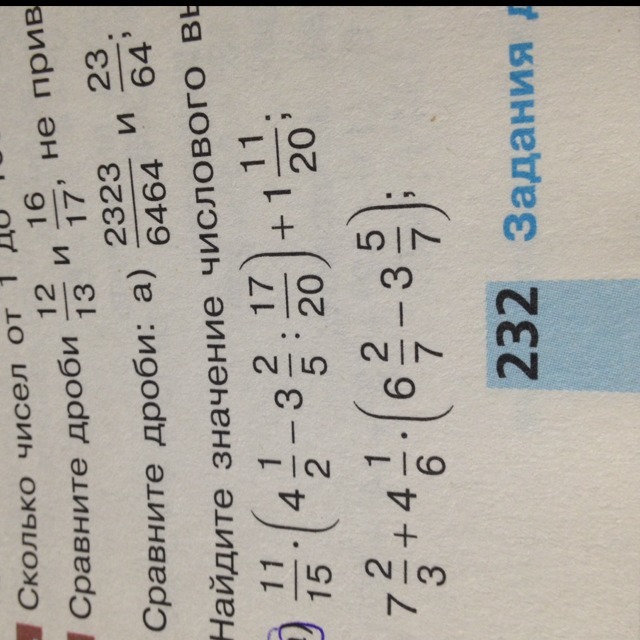 Сколько чисел от 1 до
Сравните дроби 12/13 и 16/17, не прив
Сравните дроби: а) 2323/6464 и 23/64;
Найдите значение числового вы
) 11/15 · (4 1/2 − 3 2/5 : 17/20) + 1 11/20;
7 2/3 + 4 1/6 · (6 2/7 − 3 5/7);
232 Задания